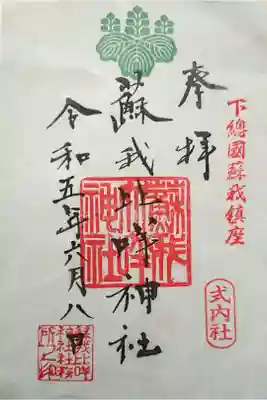 下總國蘇我鎮座
式内社
奉拝
蘇我比咩神社
令和五年六月八日
蘇我比咩神社